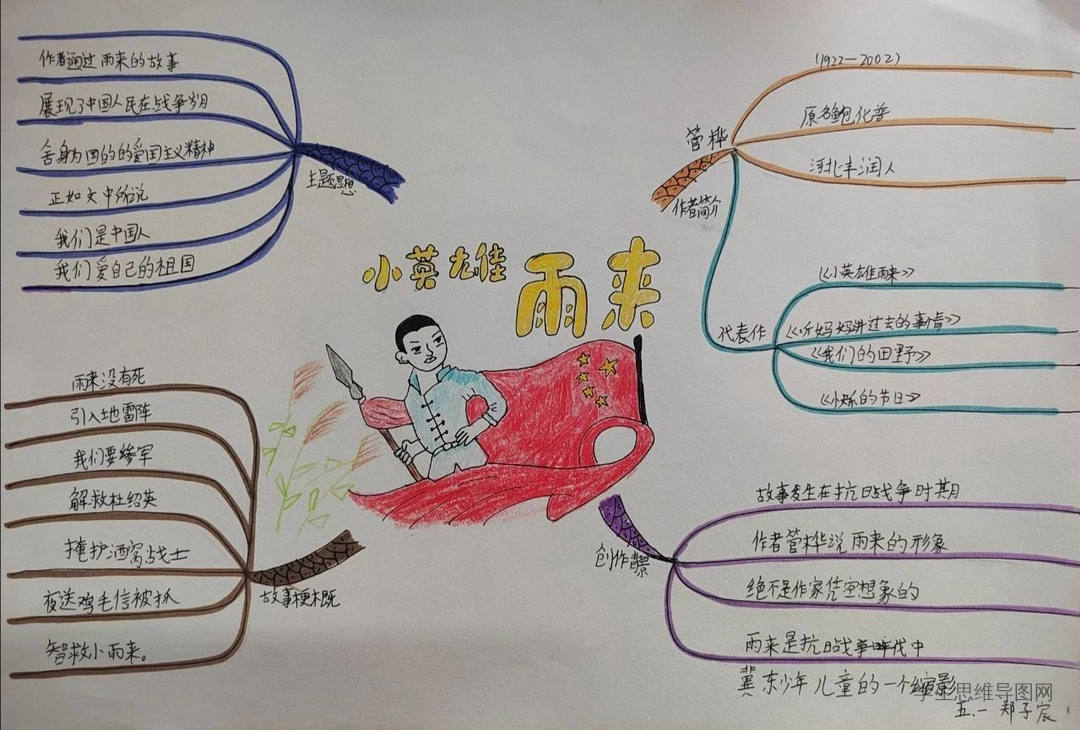 小英雄
雨来
主题思想
作者通过雨来的故事
展现了中国人民在战争岁月
舍身为国的的爱国主义精神
正如文中所说
我们是中国人
我们爱自己的祖国
作者简介
管桦
(1922—2002)
原名鲍化普
河北丰润人
代表作
《小英雄雨来》
《听妈妈讲过去的事情》
《我们的田野》
《快乐的节日》
故事梗概
雨来没有死
引入地雷阵
我们要参军
解救杜绍英
掩护酒窝战士
夜送鸡毛信被抓
智救小雨来。
创作背景
故事发生在抗日战争时期
作者管桦说雨来的形象
绝不是作家凭空想象的
雨来是抗日战争年代中
冀东少年儿童的一个缩影
学生思维导图网
五.一 郑子宸